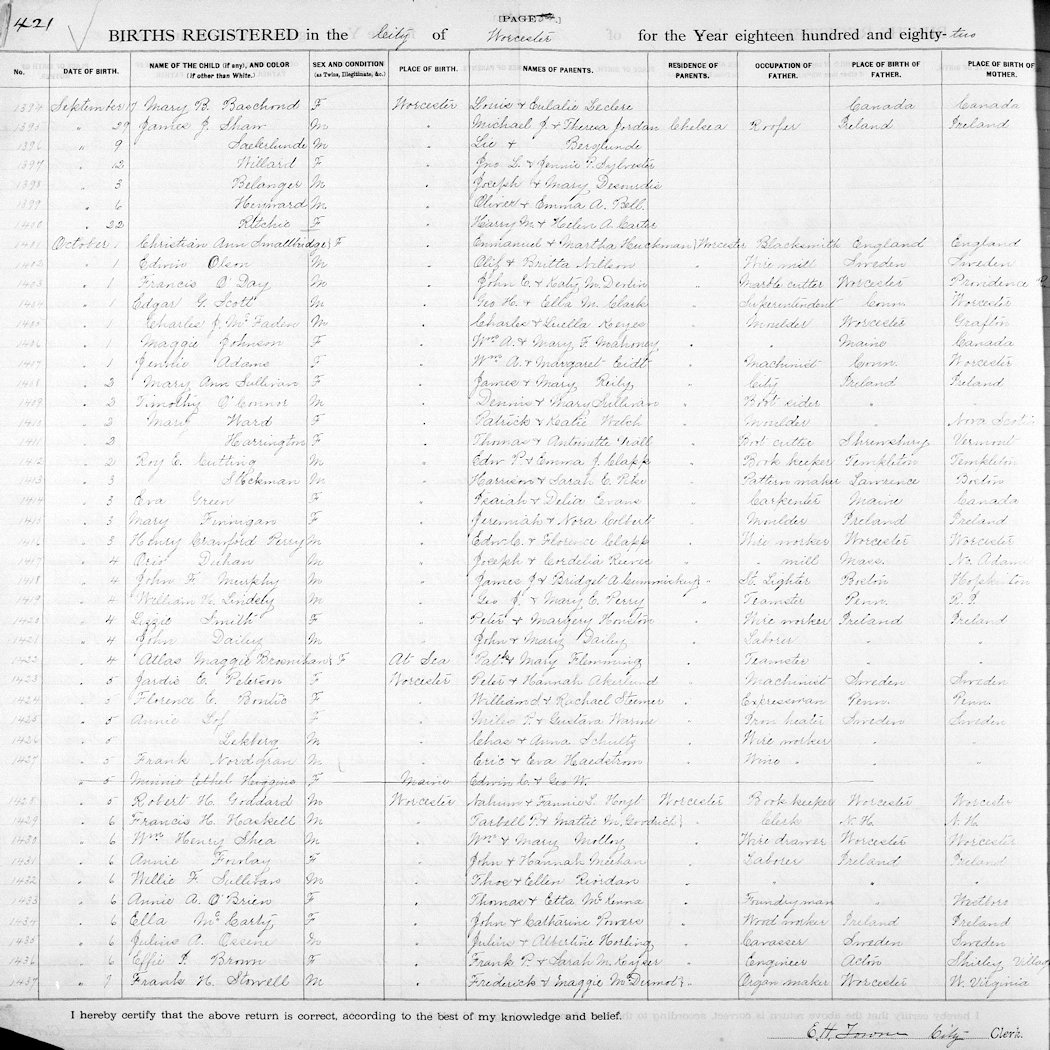 421
[PAGE
BIRTHS REGISTERED in the City of Worcester for the Year eighteen hundred and eighty-two
No. DATE OF BIRTH. NAME OF THE CHILD (if any), AND COLOR (if other than White). SEX AND CONDITION (as Twins, Illegitimate, &c.) PLACE OF BIRTH. NAMES OF PARENTS. RESIDENCE OF PARENTS. OCCUPATION OF FATHER. PLACE OF BIRTH OF FATHER. PLACE OF BIRTH OF MOTHER.
1394 September 17 Mary B. F Worcester Louis & Eulalie Leclere Canada Canada
1395 " 29 James J. Shaw M " Michael J & Theresa Jordan Chelsea Roofer Ireland Ireland
1396 " 9 M " & Berglunde
1397 " 12 Willard F " Jno L. & Jennie P. Sylvester
1398 " 3 Belanger M " Joseph & Mary
1399 " 6 M " Oliver & Emma A. Bell
1400 " 22 Ritchie F " Harry M. & Helen A. Carter
1401 October 1 Christian Ann Smallbridge F " Emmanuel & Martha Huckman Worcester Blacksmith England England
1402 " 1 Edwin Olson M " Olif & Britta Nillson " Wire mill Sweden Sweden
1403 " 1 Francis O'Day M " John E. & Katy M. Devlin " Marble cutter Worcester Providence
1404 " 1 Edgar G. Scott M " Geo H. & Ella M. Clark " Superintendent Conn. Worcester
1405 " 1 Charles J. McFaden M " Charles & Luella Keyes " Moulder Worcester Grafton
1406 " 1 Maggie Johnson F " Wm A. & Mary F. Mahoney " " Maine Canada
1407 " 1 Jennie Adams F " Wm A. & Margaret " Machinist Conn. Worcester
1408 " 2 Mary Ann Sullivan F " James & Mary Reily " City Ireland Ireland
1409 " 2 Timothy O'Connor M " Dennis & Mary Sullivan " Boot sider " "
1410 " 2 Mary Ward F " Patrick & Katie Welch " Moulder " Nova Scotia
1411 " 2 Harrington F " Thomas & Antoinette " Boot cutter Shrewsbury Vermont
1412 " 2 Roy E. Cutting M " Edw P. & Emma J. Clapp " Book keeper Templeton Templeton
1413 " 3 Stockman M " Harrison & Sarah C. Pike " Pattern maker Lawrence Boston
1414 " 3 Eva Green F " Isaiah & Delia Evans " Carpenter Maine Canada
1415 " 3 Mary Finnigan F " Jeremiah & Nora Colbert " Moulder Ireland Ireland
1416 " 3 Henry Crawford Perry M " Edw. C. & Florence Clapp " Wire worker Worcester Worcester
1417 " 4 M " Joseph & Cordelia " " mill Mass. No. Adams
1418 " 4 John F. Murphy M " James J & Bridget A. Cummiskey " St. Lighter Boston Hopkinton
1419 " 4 William H. Lindsey M " Geo J. & Mary E. Perry " Teamster Penn. R.I.
1420 " 4 Lizzie Smith F " Peter & Margery Houston " Wire worker Ireland Ireland
1421 " 4 John Dailey M " John & Mary Dailey " Laborer " "
1422 " 4 Atlas Maggie Brosnihan F At Sea Patk & Mary Flemming " Teamster " "
1423 " 5 Jardis C. Peterson F Worcester Peter & Hannah Akerlund " Machinist Sweden Sweden
1424 " 5 Florence E. F " William S. & Rachael Steemer " Expressman Penn. Penn.
1425 " 5 Annie F " & Gustava Warme " Iron heater Sweden Sweden
1426 " 5 Lekberg M " Chas & Anna Schultz " Wire worker " "
1427 " 5 Frank Nordgran M " Eric & Eva Haedstrom " Wire " " "
" 5 Minnie Ethel Huggins F Maine Edwin C. & Geo W.
1428 " 5 Robert H. Goddard M Worcester Nahum & Fannie L. Hoyt Worcester Book keeper Worcester Worcester
1429 " 6 Francis H. Haskell M " Tarbell P. & Mattie M. Goodrich " Clerk N.H. N.H.
1430 " 6 Wm Henry Shea M " Wm & Mary Molloy " Wire drawer Worcester Worcester
1431 " 6 Annie Finlay F " John & Hannah Meehan " Laborer Ireland Ireland
1432 " 6 Willie F. Sullivan M " Thos & Ellen Riordan " " " "
1433 " 6 Annie A. O'Brien F " Thomas & Etta McKenna " Foundryman " Westboro
1434 " 6 Ella McCarty F " John & Catharine Powers " Wood maker Ireland Ireland
1435 " 6 Julius A. Ossene M " Julius & Albertine Horling " Canasser Sweden Sweden
1436 " 6 Effie I. Brown F " Frank P. & Sarah M. Keyser " Engineer Acton Shirley Village
1437 " 7 Frank H. Stowell M " Frederick & Maggie McDermot " Organ maker Worcester W. Virginia
I hereby certify that the above return is correct, according to the best of my knowledge and belief.
E.H. Towne City Clerk.